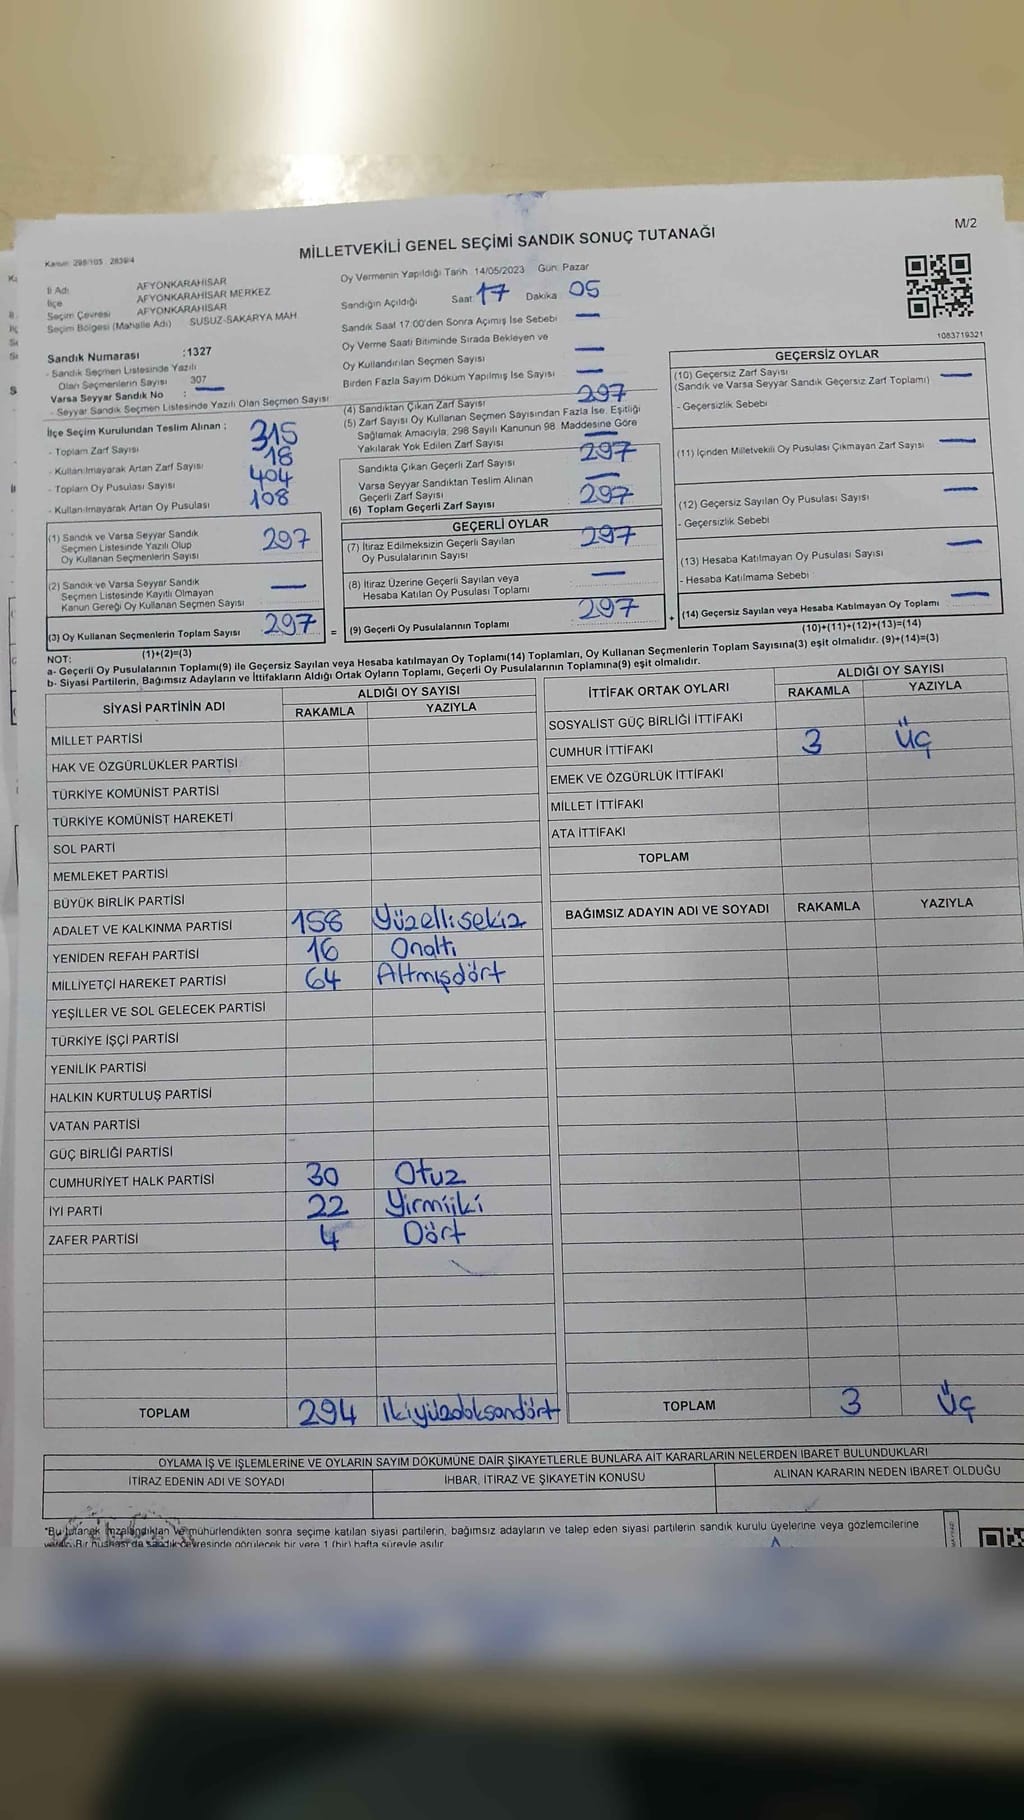 M/2
MİLLETVEKİLİ GENEL SEÇİMİ SANDIK SONUÇ TUTANAĞI
Kanun: 298/105, 2839/4
İl Adı AFYONKARAHİSAR
İlçe AFYONKARAHİSAR MERKEZ
Seçim Çevresi AFYONKARAHİSAR
Seçim Bölgesi (Mahalle Adı) SUSUZ-SAKARYA MAH
Sandık Numarası :1327
- Sandık Seçmen Listesinde Yazılı
Olan Seçmenlerin Sayısı 307
Varsa Seyyar Sandık No : —
- Seyyar Sandık Seçmen Listesinde Yazılı Olan Seçmen Sayısı
Oy Vermenin Yapıldığı Tarih 14/05/2023 Gün: Pazar
Sandığın Açıldığı Saat 17 Dakika 05
Sandık Saat 17:00'den Sonra Açımış İse Sebebi —
Oy Verme Saati Bitiminde Sırada Bekleyen ve
Oy Kullandırılan Seçmen Sayısı —
Birden Fazla Sayım Döküm Yapılmış İse Sayısı —
İlçe Seçim Kurulundan Teslim Alınan :
- Toplam Zarf Sayısı 315
- Kullanılmayarak Artan Zarf Sayısı 18
- Toplam Oy Pusulası Sayısı 404
- Kullanılmayarak Artan Oy Pusulası 108
(1) Sandık ve Varsa Seyyar Sandık
Seçmen Listesinde Yazılı Olup
Oy Kullanan Seçmenlerin Sayısı 297
(2) Sandık ve Varsa Seyyar Sandık
Seçmen Listesinde Kayıtlı Olmayan
Kanun Gereği Oy Kullanan Seçmen Sayısı —
(3) Oy Kullanan Seçmenlerin Toplam Sayısı 297 =
(1)+(2)=(3)
(4) Sandıktan Çıkan Zarf Sayısı 297
(5) Zarf Sayısı Oy Kullanan Seçmen Sayısından Fazla İse, Eşitliği
Sağlamak Amacıyla, 298 Sayılı Kanunun 98. Maddesine Göre
Yakılarak Yok Edilen Zarf Sayısı —
Sandıkta Çıkan Geçerli Zarf Sayısı 297
Varsa Seyyar Sandıktan Teslim Alınan
Geçerli Zarf Sayısı —
(6) Toplam Geçerli Zarf Sayısı 297
GEÇERLİ OYLAR
(7) İtiraz Edilmeksizin Geçerli Sayılan
Oy Pusulalarının Sayısı 297
(8) İtiraz Üzerine Geçerli Sayılan veya
Hesaba Katılan Oy Pusulası Toplamı —
(9) Geçerli Oy Pusulalarının Toplamı 297 +
1083719321
GEÇERSİZ OYLAR
(10) Geçersiz Zarf Sayısı
(Sandık ve Varsa Seyyar Sandık Geçersiz Zarf Toplamı) —
- Geçersizlik Sebebi
(11) İçinden Milletvekili Oy Pusulası Çıkmayan Zarf Sayısı —
(12) Geçersiz Sayılan Oy Pusulası Sayısı —
- Geçersizlik Sebebi
(13) Hesaba Katılmayan Oy Pusulası Sayısı —
- Hesaba Katılmama Sebebi :
(14) Geçersiz Sayılan veya Hesaba Katılmayan Oy Toplamı —
(10)+(11)+(12)+(13)=(14)
NOT:
a- Geçerli Oy Pusulalarının Toplamı(9) ile Geçersiz Sayılan veya Hesaba katılmayan Oy Toplamı(14) Toplamları, Oy Kullanan Seçmenlerin Toplam Sayısına(3) eşit olmalıdır. (9)+(14)=(3)
b- Siyasi Partilerin, Bağımsız Adayların ve İttifakların Aldığı Ortak Oyların Toplamı, Geçerli Oy Pusulalarının Toplamına(9) eşit olmalıdır.
SİYASİ PARTİNİN ADI ALDIĞI OY SAYISI
RAKAMLA YAZIYLA
MİLLET PARTİSİ
HAK VE ÖZGÜRLÜKLER PARTİSİ
TÜRKİYE KOMÜNİST PARTİSİ
TÜRKİYE KOMÜNİST HAREKETİ
SOL PARTİ
MEMLEKET PARTİSİ
BÜYÜK BİRLİK PARTİSİ
ADALET VE KALKINMA PARTİSİ 158 Yüzellisekiz
YENİDEN REFAH PARTİSİ 16 Onaltı
MİLLİYETÇİ HAREKET PARTİSİ 64 Altmışdört
YEŞİLLER VE SOL GELECEK PARTİSİ
TÜRKİYE İŞÇİ PARTİSİ
YENİLİK PARTİSİ
HALKIN KURTULUŞ PARTİSİ
VATAN PARTİSİ
GÜÇ BİRLİĞİ PARTİSİ
CUMHURİYET HALK PARTİSİ 30 Otuz
İYİ PARTİ 22 Yirmiiki
ZAFER PARTİSİ 4 Dört
TOPLAM 294 İkiyüzdoksandört
İTTİFAK ORTAK OYLARI ALDIĞI OY SAYISI
RAKAMLA YAZIYLA
SOSYALİST GÜÇ BİRLİĞİ İTTİFAKI
CUMHUR İTTİFAKI 3 Üç
EMEK VE ÖZGÜRLÜK İTTİFAKI
MİLLET İTTİFAKI
ATA İTTİFAKI
TOPLAM
BAĞIMSIZ ADAYIN ADI VE SOYADI RAKAMLA YAZIYLA
TOPLAM 3 Üç
OYLAMA İŞ VE İŞLEMLERİNE VE OYLARIN SAYIM DÖKÜMÜNE DAİR ŞİKAYETLERLE BUNLARA AİT KARARLARIN NELERDEN İBARET BULUNDUKLARI
İTİRAZ EDENİN ADI VE SOYADI İHBAR, İTİRAZ VE ŞİKAYETİN KONUSU ALINAN KARARIN NEDEN İBARET OLDUĞU
*Bu tutanak imzalandıktan ve mühürlendikten sonra seçime katılan siyasi partilerin, bağımsız adayların ve talep eden siyasi partilerin sandık kurulu üyelerine veya gözlemcilerine
verilir. Bir nüshası da sandık çevresinde görülecek bir yere 1 (bir) hafta süreyle asılır.